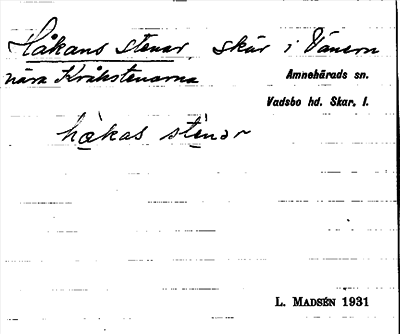 Håkans stenar, skär i Vänern
nära Kråkstenarna
Amnehärads sn.
Vadsbo hd. Skar. l.
hákas stènər
L. MADSÉN 1931